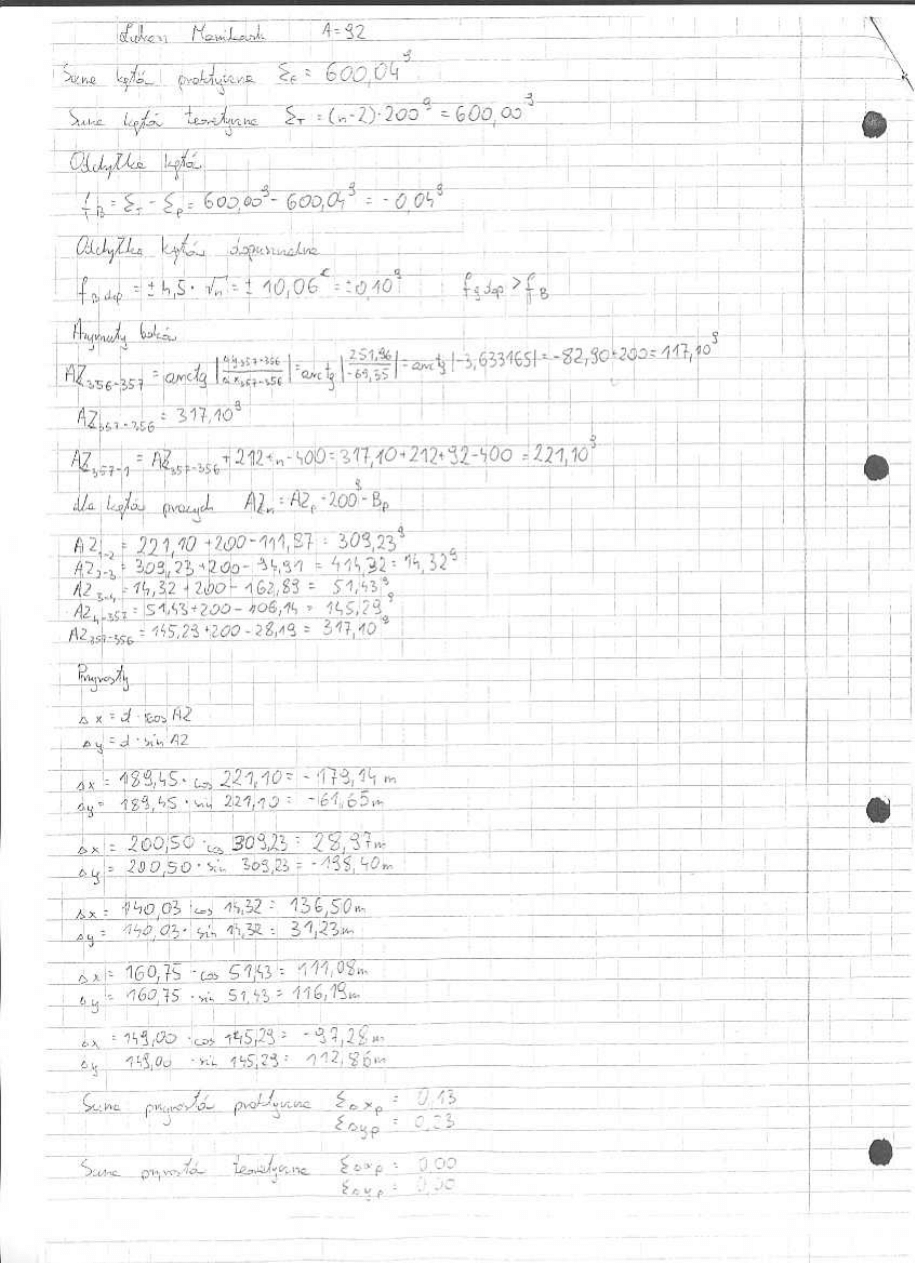 A=92
Suma kątów praktyczna Σₚ = 600,04ᵍ
Suma kątów teoretyczna Σ_T = (n-2)·200ᵍ = 600,00ᵍ
Odchyłka kątów
f_B = Σ_T - Σ_p = 600,00ᵍ - 600,04ᵍ = -0,04ᵍ
Odchyłka kątów dopuszczalna
f_B dop = ± 4,5 · √n = ± 10,06ᶜ = ±0,10ᵍ f_B dop > f_B
Azymuty boków
AZ_356-357 = arctg |Δy_357-356 / Δx_357-356| = arctg |251,96 / -69,35| = arctg |-3,633165| = -82,90+200 = 117,10ᵍ
AZ_357-356 = 317,10ᵍ
AZ_357-1 = AZ_357-356 + 212+n-400 = 317,10+212+92-400 = 221,10ᵍ
dla kątów prawych AZₙ = AZₚ + 200ᵍ - Bₚ
AZ_1-2 = 221,10 +200-111,87 = 309,23ᵍ
AZ_2-3 = 309,23 +200- 94,91 = 414,32 = 14,32ᵍ
AZ_3-4 = 14,32 +200- 162,89 = 51,43ᵍ
AZ_4-357 = 51,43+200-106,14 = 145,29ᵍ
AZ_357-356 = 145,29 +200-28,19 = 317,10ᵍ
Przyrosty
Δx = d · cos AZ
Δy = d · sin AZ
Δx = 189,45 · cos 221,10 = -179,14 m
Δy = 189,45 · sin 221,10 = -61,65m
Δx = 200,50 · cos 309,23 = 28,97m
Δy = 200,50 · sin 309,23 = -198,40m
Δx = 140,03 · cos 14,32 = 136,50m
Δy = 140,03 · sin 14,32 = 31,23m
Δx = 160,75 · cos 51,43 = 111,08m
Δy = 160,75 · sin 51,43 = 116,19m
Δx = 149,00 · cos 145,29 = -97,28m
Δy 149,00 · sin 145,29 = 112,86m
Suma przyrostów praktyczna Σ_Δxp = 0,13
Σ_Δyp = 0,23
Suma przyrostów teoretyczna Σ_Δxp = 0,00
Σ_Δyp = 0,00